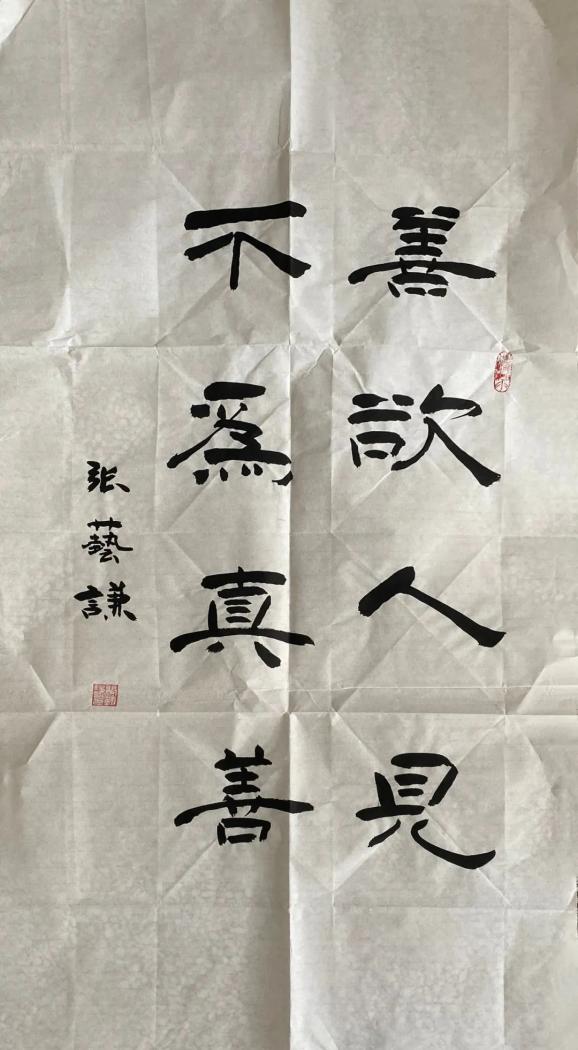 善欲人見
不爲真善
張藝謙